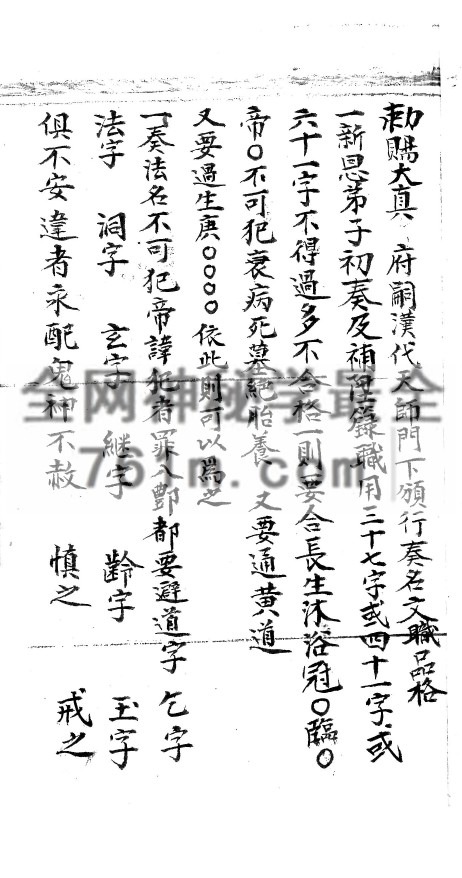 勅賜大真 府嗣漢代天師門下頒行奏名文職品格
一新恩弟子初奏及補陞籙職用三十七字或四十一字或
六十一字不得過多不合格一則要合長生沐浴冠〇臨〇
帝〇不可犯衰病死墓絕胎養 又要通黄道
又要過生庚〇〇〇〇依此則可以為之
一奏法名不可犯帝諱犯者罪入酆都要避道字 乞字
法字 洞字 玄字 継字 齡字 玉字
俱不安違者永配鬼神不赦 慎之 戒之
全网神秘学最全
761m.com